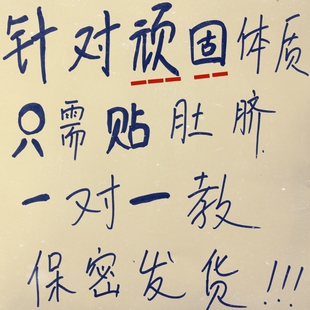 针对顽固体质
只需贴肚脐
一对一教
保密发货!!!